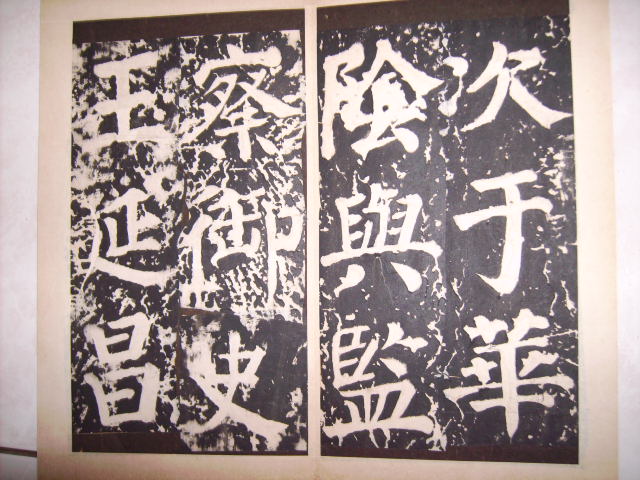 次于華
陰與監
察御史
王延昌